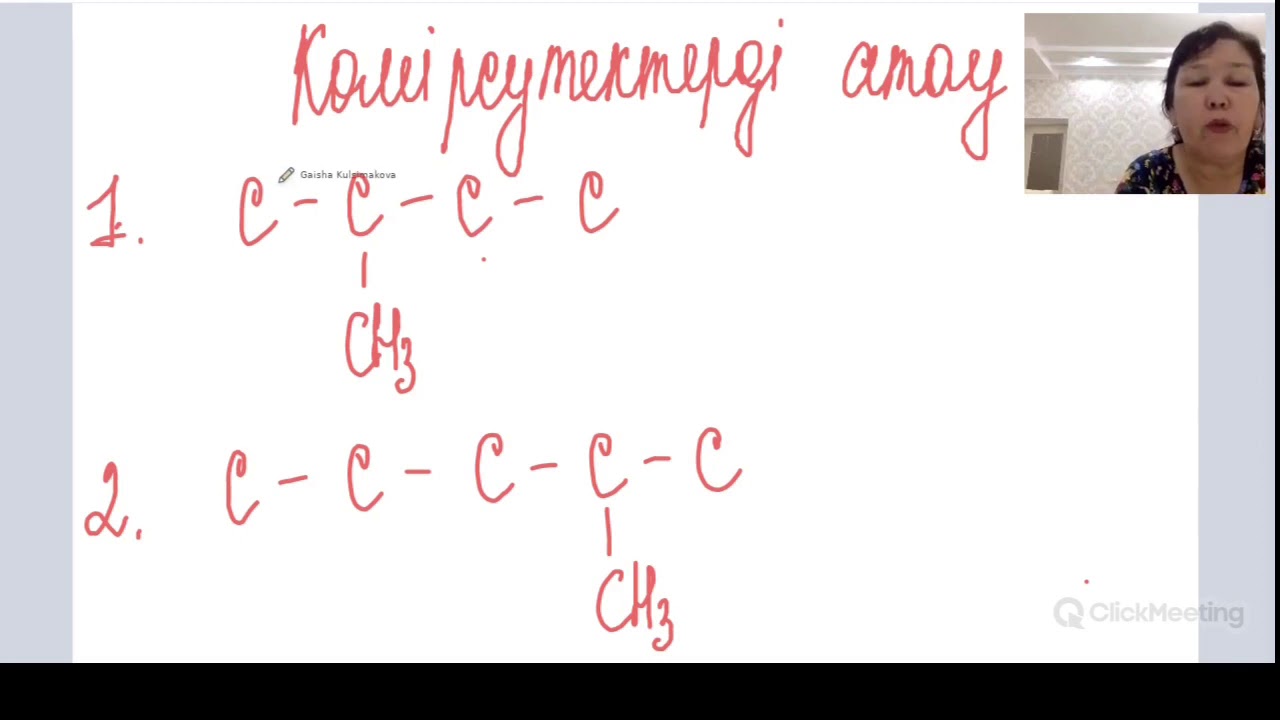 Көмірсутектерді атау
Gaisha Kulsimakova
1. C - C - C - C
CH3
2. C - C - C - C - C
CH3
ClickMeeting